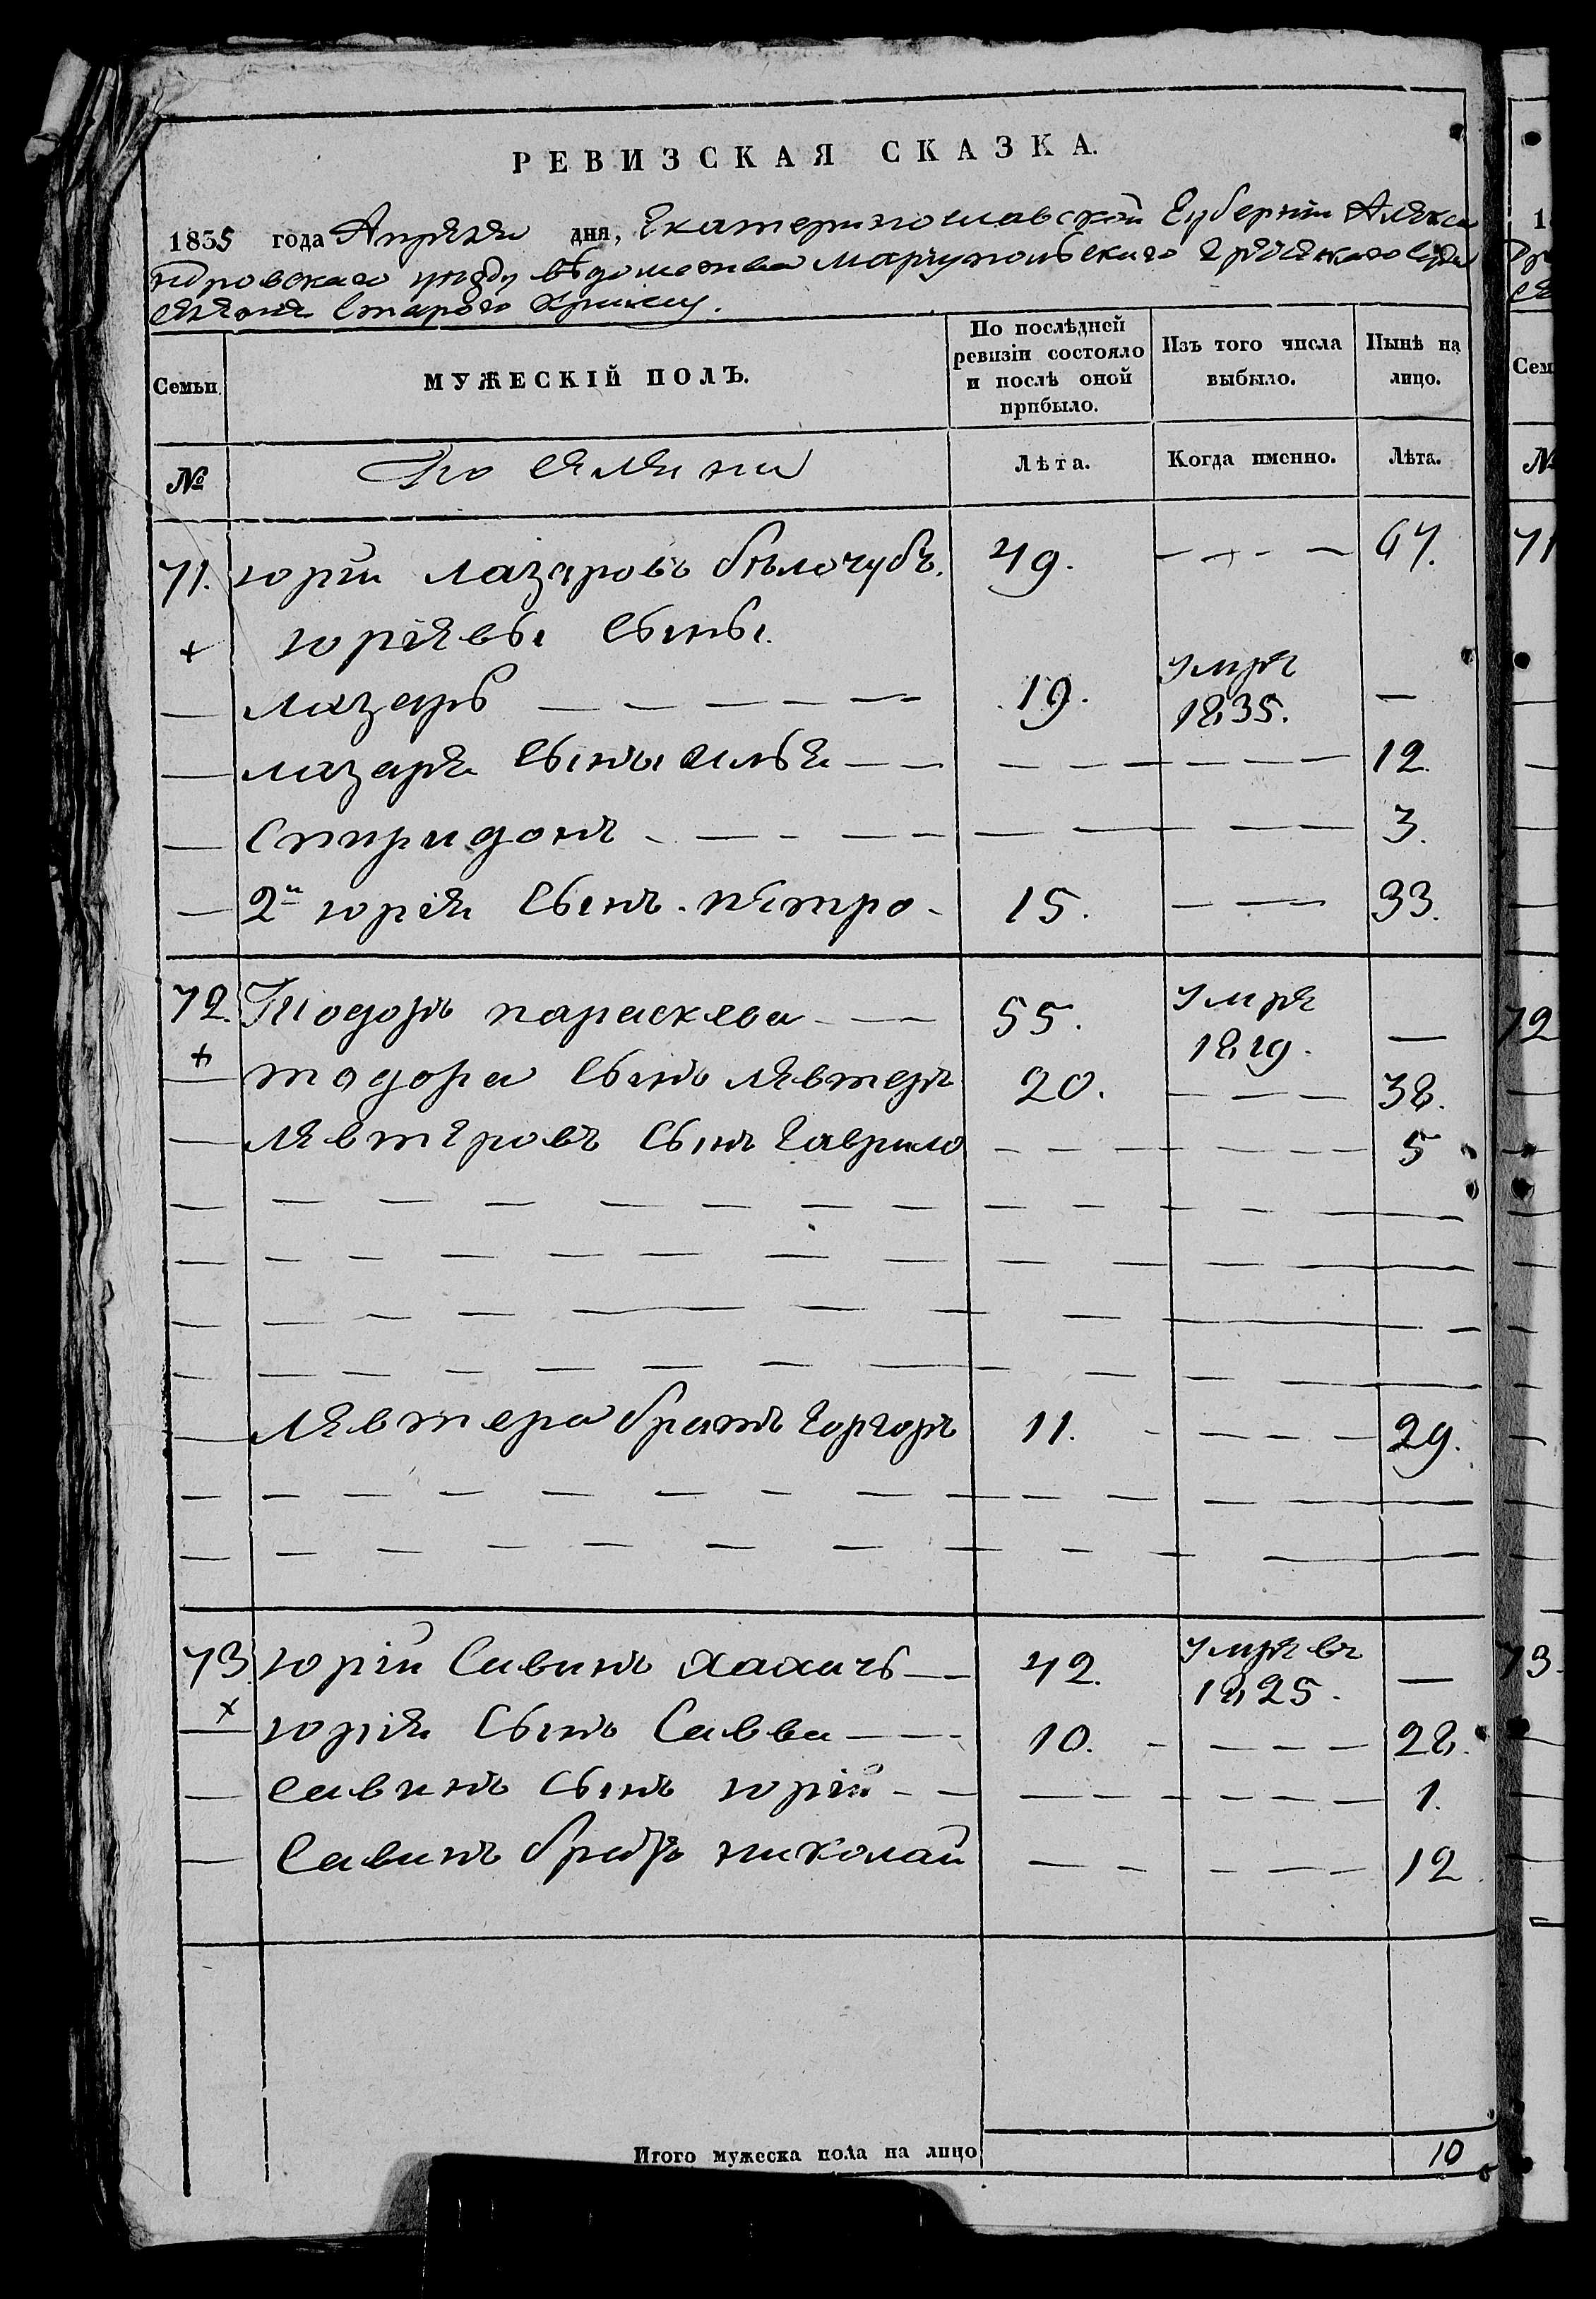 РЕВИЗСКАЯ СКАЗКА.
1835 года Апреля дня, Екатеринославской Губернiи Алекса
ндровскаго уезду вѣдомства Мариупольскаго Греческаго Суда
селенiя Старого Крыму.
Семьи. МУЖЕСКIЙ ПОЛЪ. По послѣдней ревизiи состояло и послѣ оной прибыло. Изъ того числа выбыло. Нынѣ на лицо.
№ Поселяни Лѣта. Когда именно. Лѣта.
71. юрiй лазаровъ бѣлочубъ. 49. — — — — 67.
+ юрiевы сыны.
— лазарь — — — — — 19. умре 1835. —
— лазаря сыны илья — — — — — — — — 12.
— спиридонъ — — — — — — — — 3.
— 2й юрiя сынъ. петро — 15. — — 33.
72. Тодоръ параскева — — 55. умре 1819. —
+ — тодора сынъ левтеръ 20. — — — 38.
— левтеровъ сынъ гаврило — — — — — — 5
— левтера братъ горгоръ 11. — — — — 29.
73. юрiй Савинъ хахичь — 42. умре въ 1825. —
+ — юрiя сынъ Савва — — 10. — — — — 28.
— савинъ сынъ юрiй — — — — — — — — 1.
— Савинъ братъ николай — — — — — 12
Итого мужеска пола на лицо 10